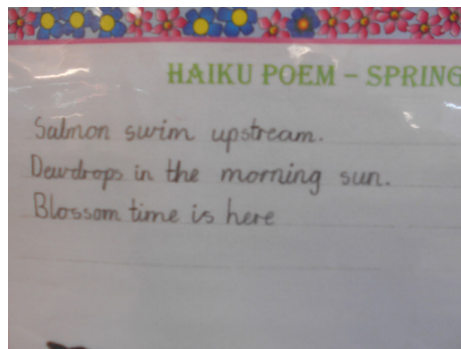 HAIKU POEM – SPRING
Salmon swim upstream.
Dewdrops in the morning sun.
Blossom time is here